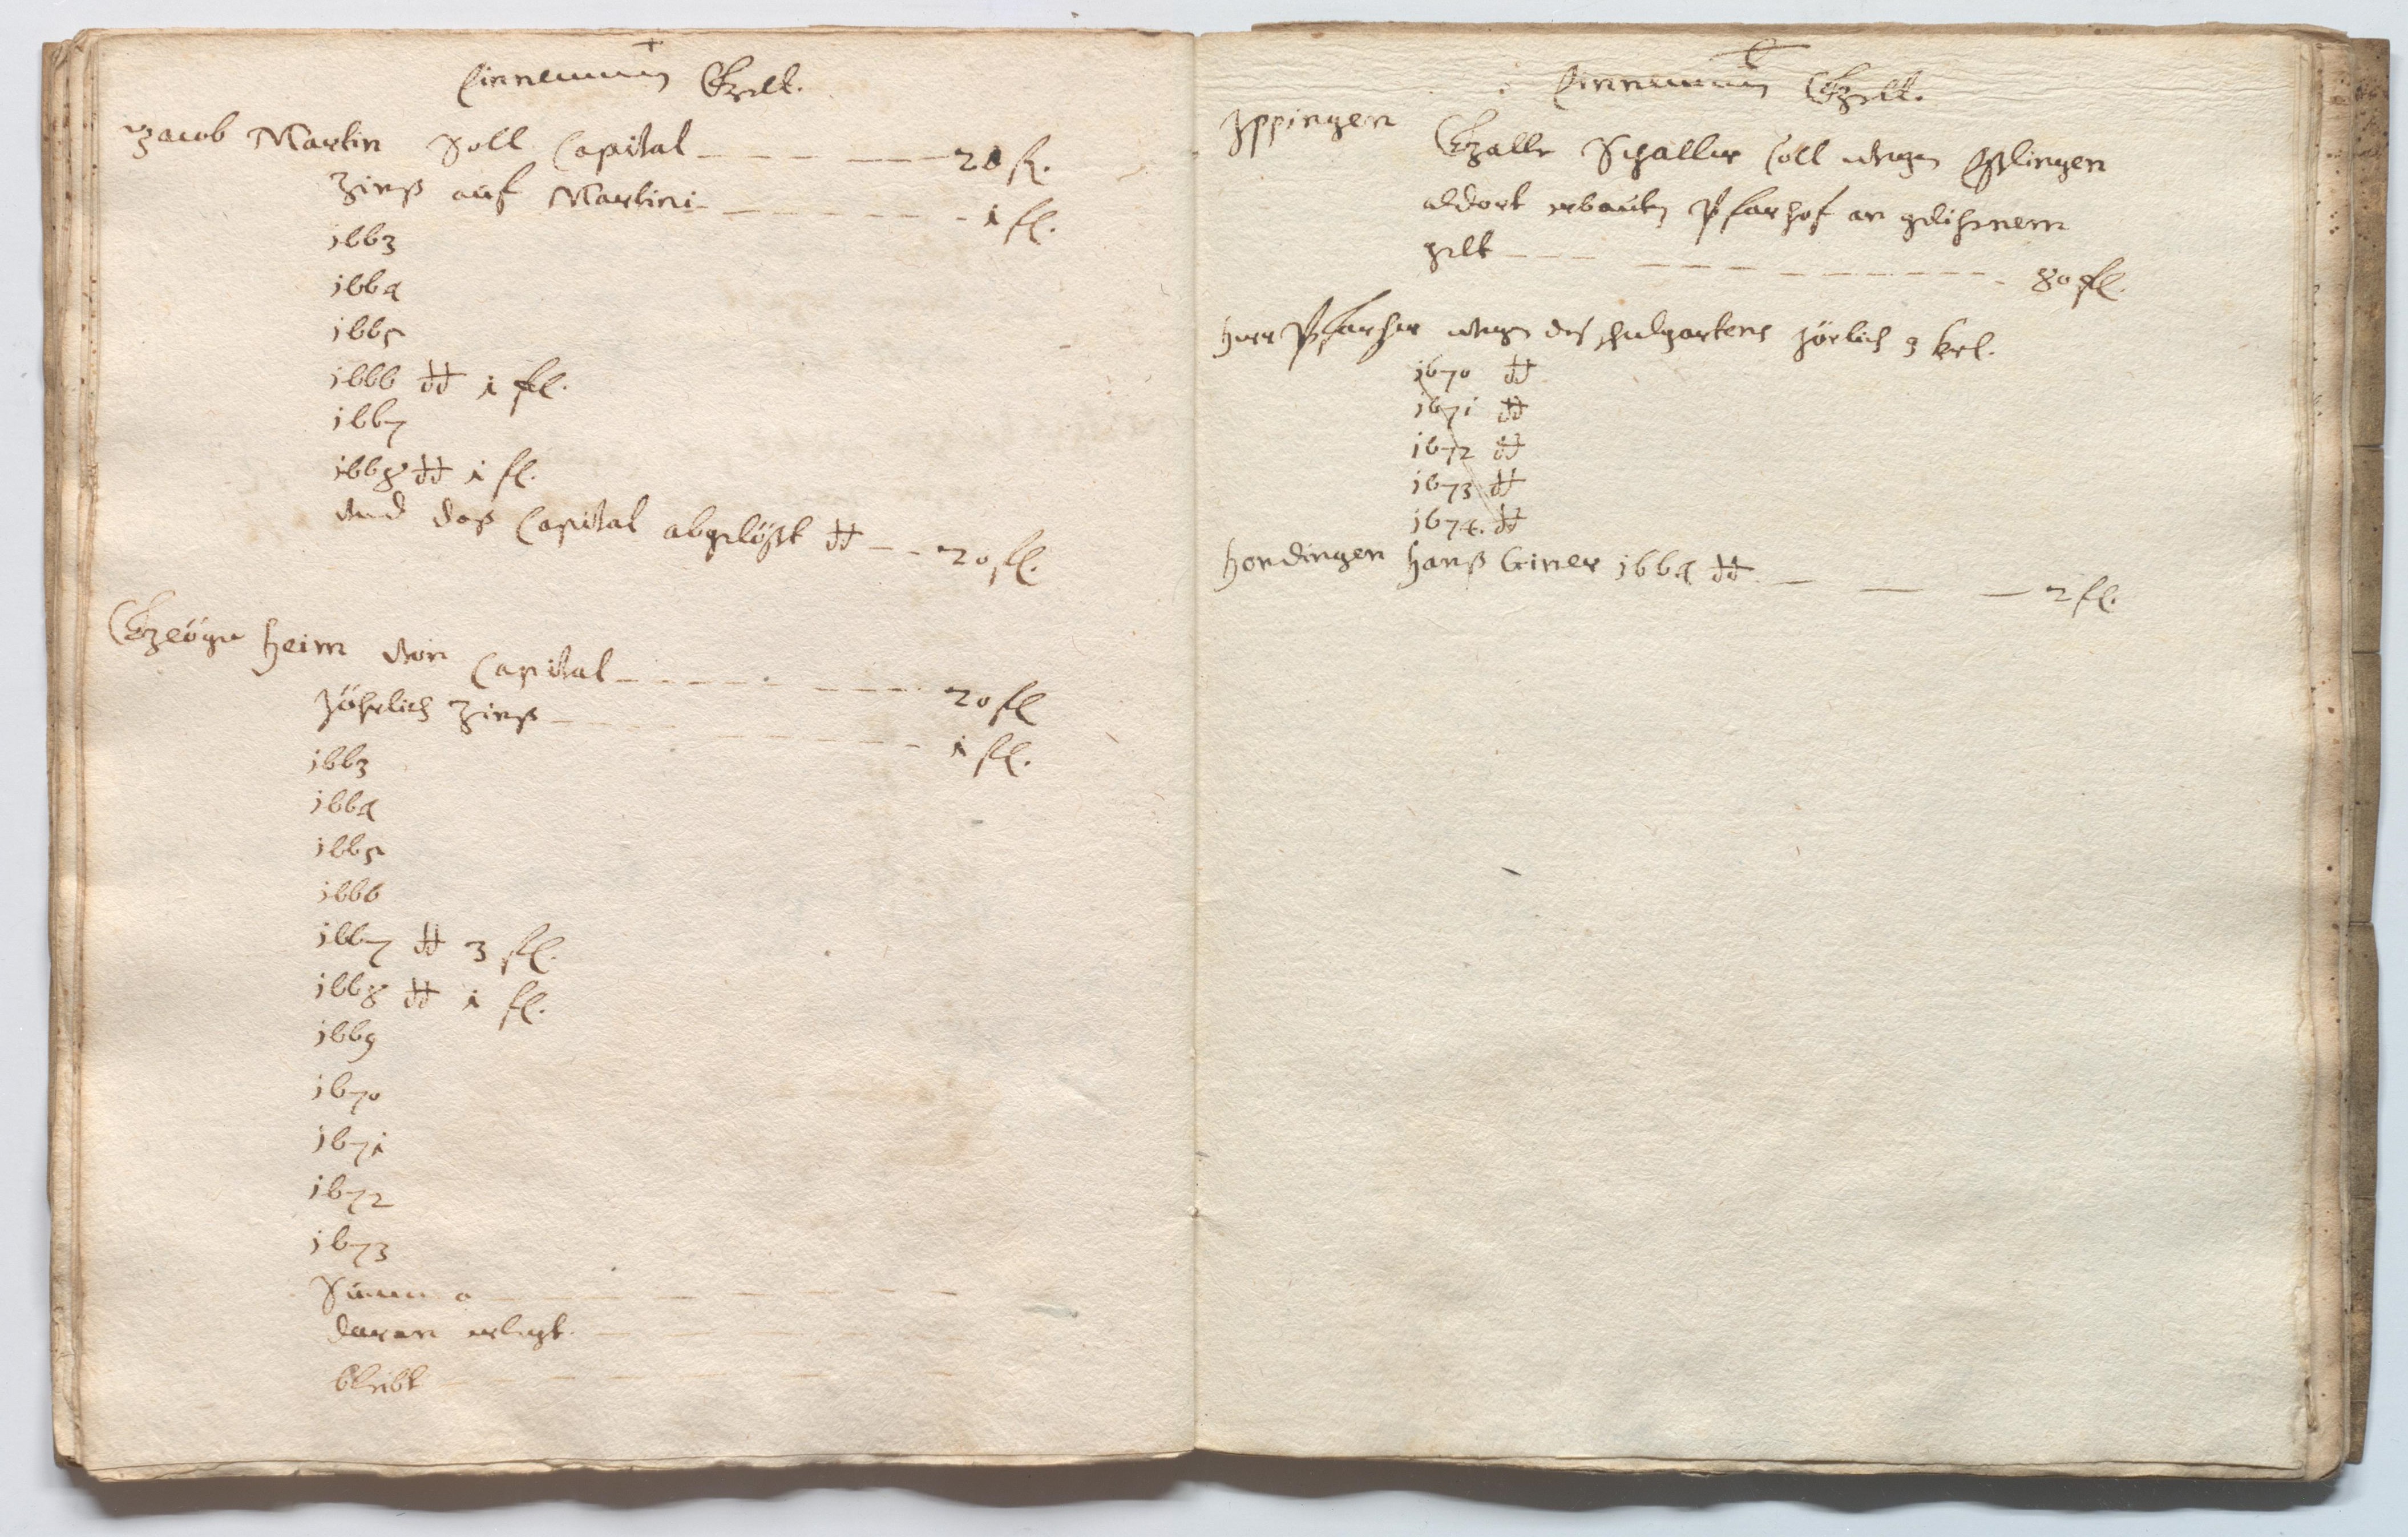 Einnemmung Gelt.
Jacob Martin Soll Capital 20 fl.
Zinß auf Martini 1 fl.
1663
1664
1665
1666 dt 1 fl.
1667
1668 dt 1 fl.
Und daß Capital abgelößt dt 20 fl.
Heim von Capital 20 fl
Jöhrlich Zinß 1 fl.
1663
1664
1665
1666
1667 dt 3 fl.
1668 dt 1 fl.
1669
1670
1671
1672
1673
Summa
daran erlegt.
bleibt
Einnemmung Gelt.
Ippingen
Galle Schaller soll wegen Eßlingen
aldort erbauten Pfarhof an gelihenem
gelt 80 fl.
Herr Pfarher wegen deß jörlich 3
1670 dt
1671 dt
1672 dt
1673 dt
1674. dt
Hondingen Hanß 1664 dt 2 fl.